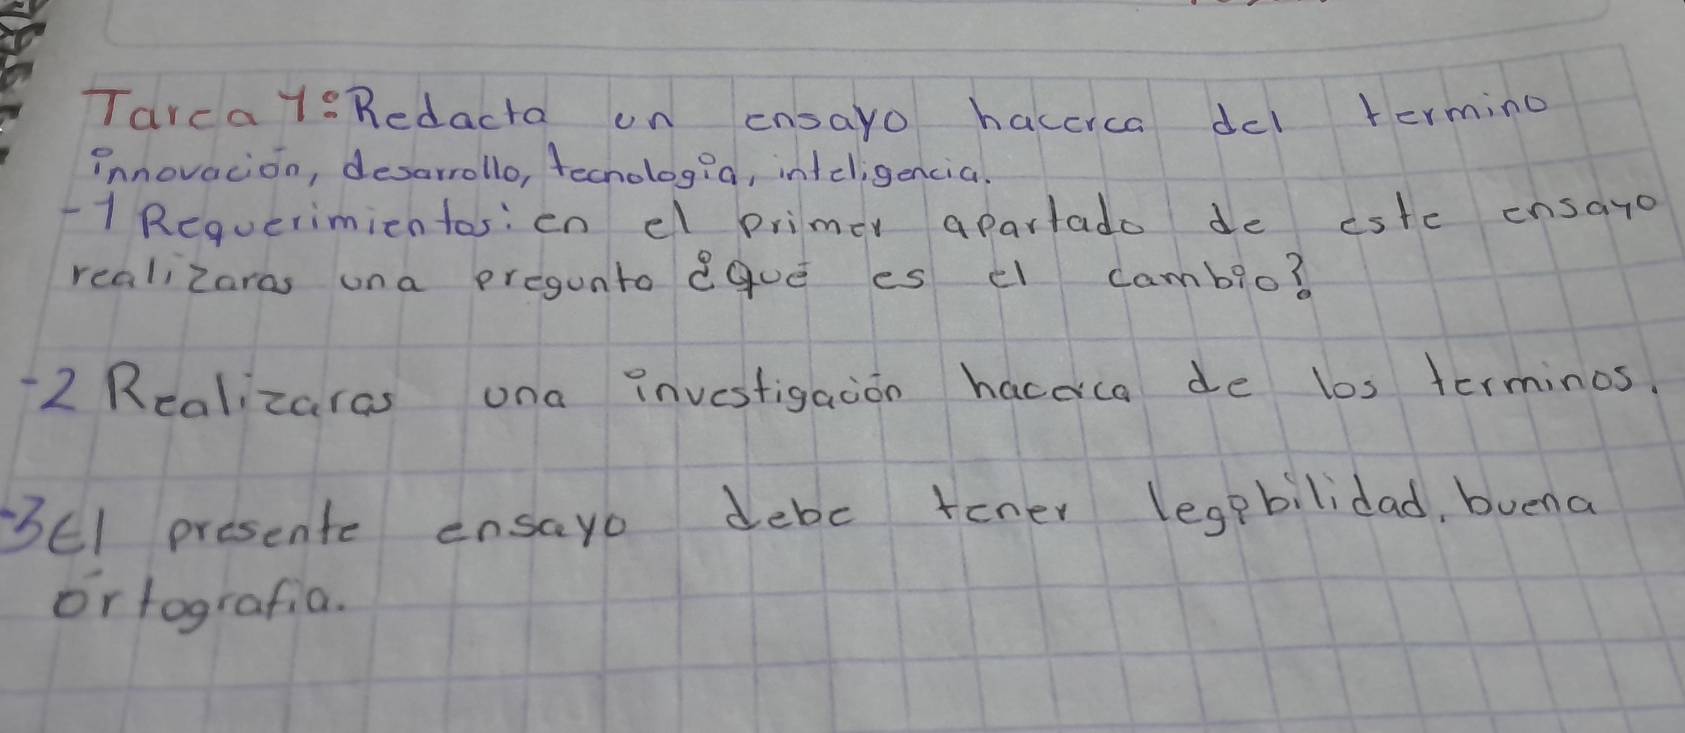 Tarea 1: Redacta un ensayo hacerca del termino
innovación, desarrollo, tecnologia, inteligencia.
-1 Requerimientos: en el primer apartado de este ensayo
realizaras una pregunta ¿Qué es el cambio?
-2 Realizaras una investigación hacerca de los terminos.
-3 El presente ensayo debe tener legibilidad, buena
ortografia.